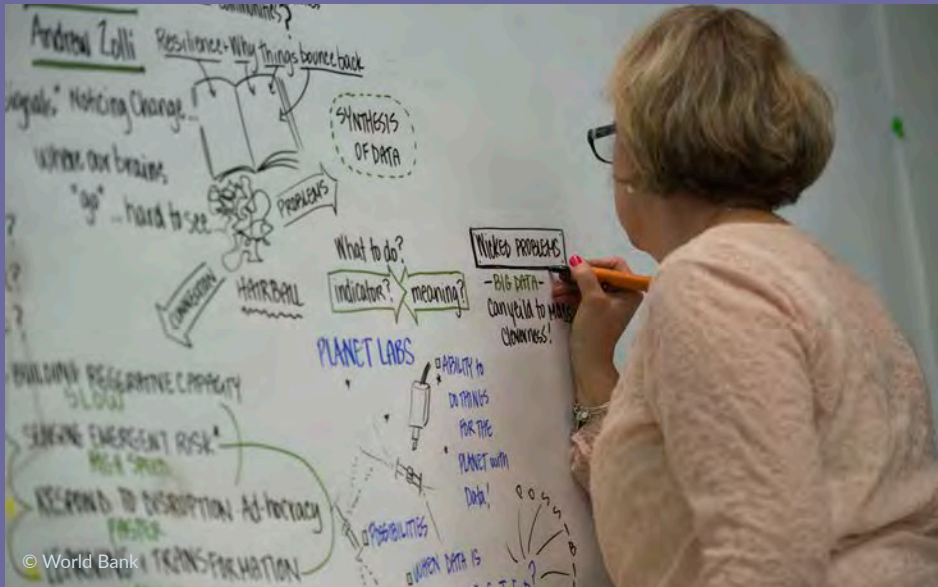 communities?
Andrew Zolli
Resilience-Why things bounce back
signals" Noticing Change...
Where our brains
"go"...hard to see
SYNTHESIS
OF DATA
PROBLEMS
COGNITION
HAIRBALL
What to do?
indicator?
meaning?
WICKED PROBLEMS
-BIG DATA-
Can yeild to
cleverness!
PLANET LABS
ABILITY to
DO THINGS
FOR THE
PLANET with
Data!
BUILDING REGERATIVE CAPACITY
SLOW
SENSING EMERGENT RISK*
HIGH SPEED
RESPOND TO DISRUPTION Ad-hocracy
FASTER
TRANSFORMATION
POSSIBILITIES
WHEN DATA IS
© World Bank